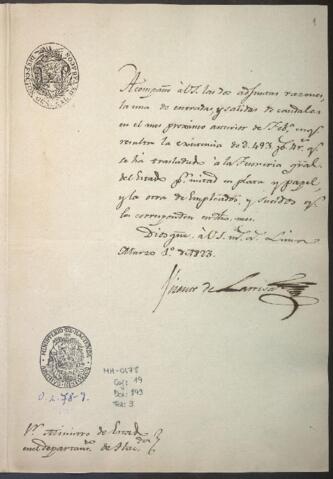 1
Acompaño à V.S. las dos adjuntas razones,
la una de entradas, y salidas de caudales
en el mes proximo anterior de Feb.o
resulta la de 493
se ha trasladado a la Tesoreria gral.
del Estado p.r mitad en plata y papel,
y la otra de Empleados, y sueldos q.e
les corresponden en dho. mes.
Dios gue. à V.S. m.s a.s Lima
Marzo 1.o de 1823.
de Larriva
MINISTERIO DE HACIENDA
ARCHIVO HISTORICO
MH-0178
Caj: 19
Doc: 843
Fol: 3
O.L. 78-7.
S.r Ministro de Estado
en el Departam.to de Hac.da